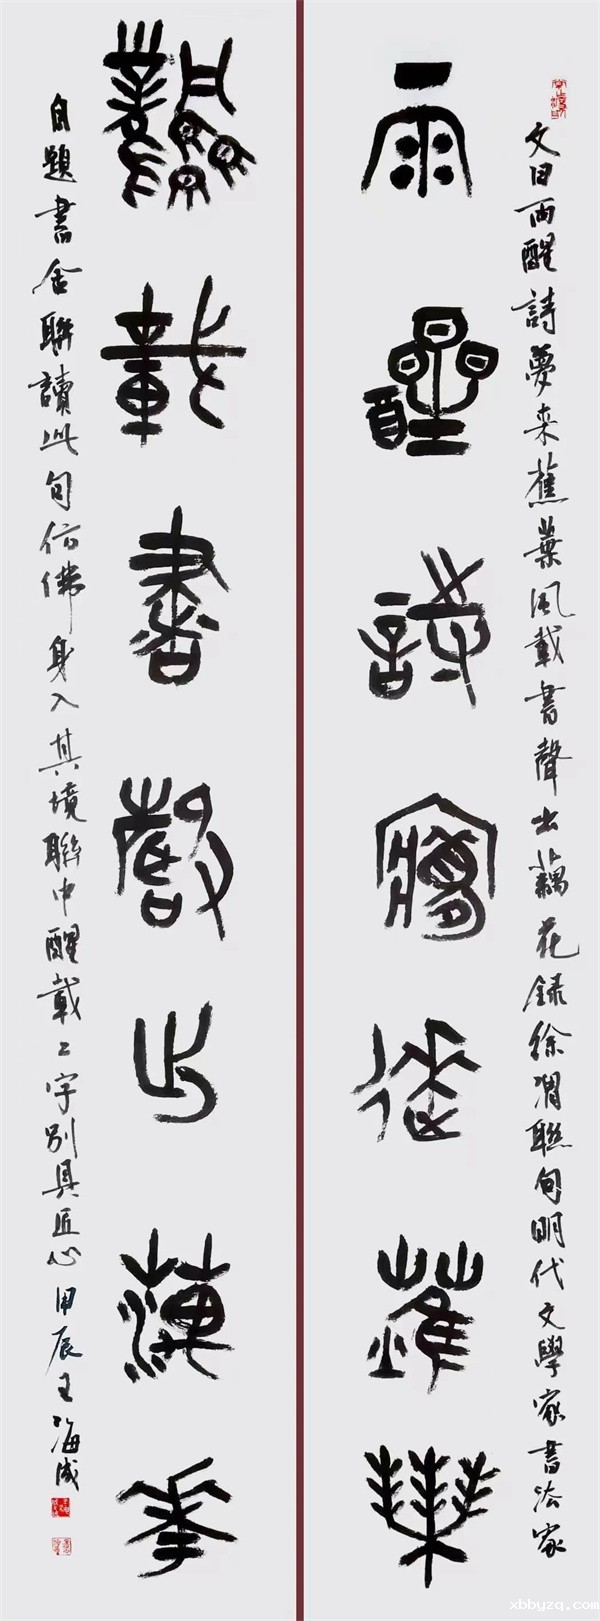 文曰雨醒詩夢来蕉葉風載書聲出藕花録徐渭聯句明代文學家書法家
雨醒詩夢來蕉葉
風載書聲出蕅華
自題書舍聯讀此句仿佛身入其境聯中醒載二字別具匠心甲辰王海成
xbbyzq.com